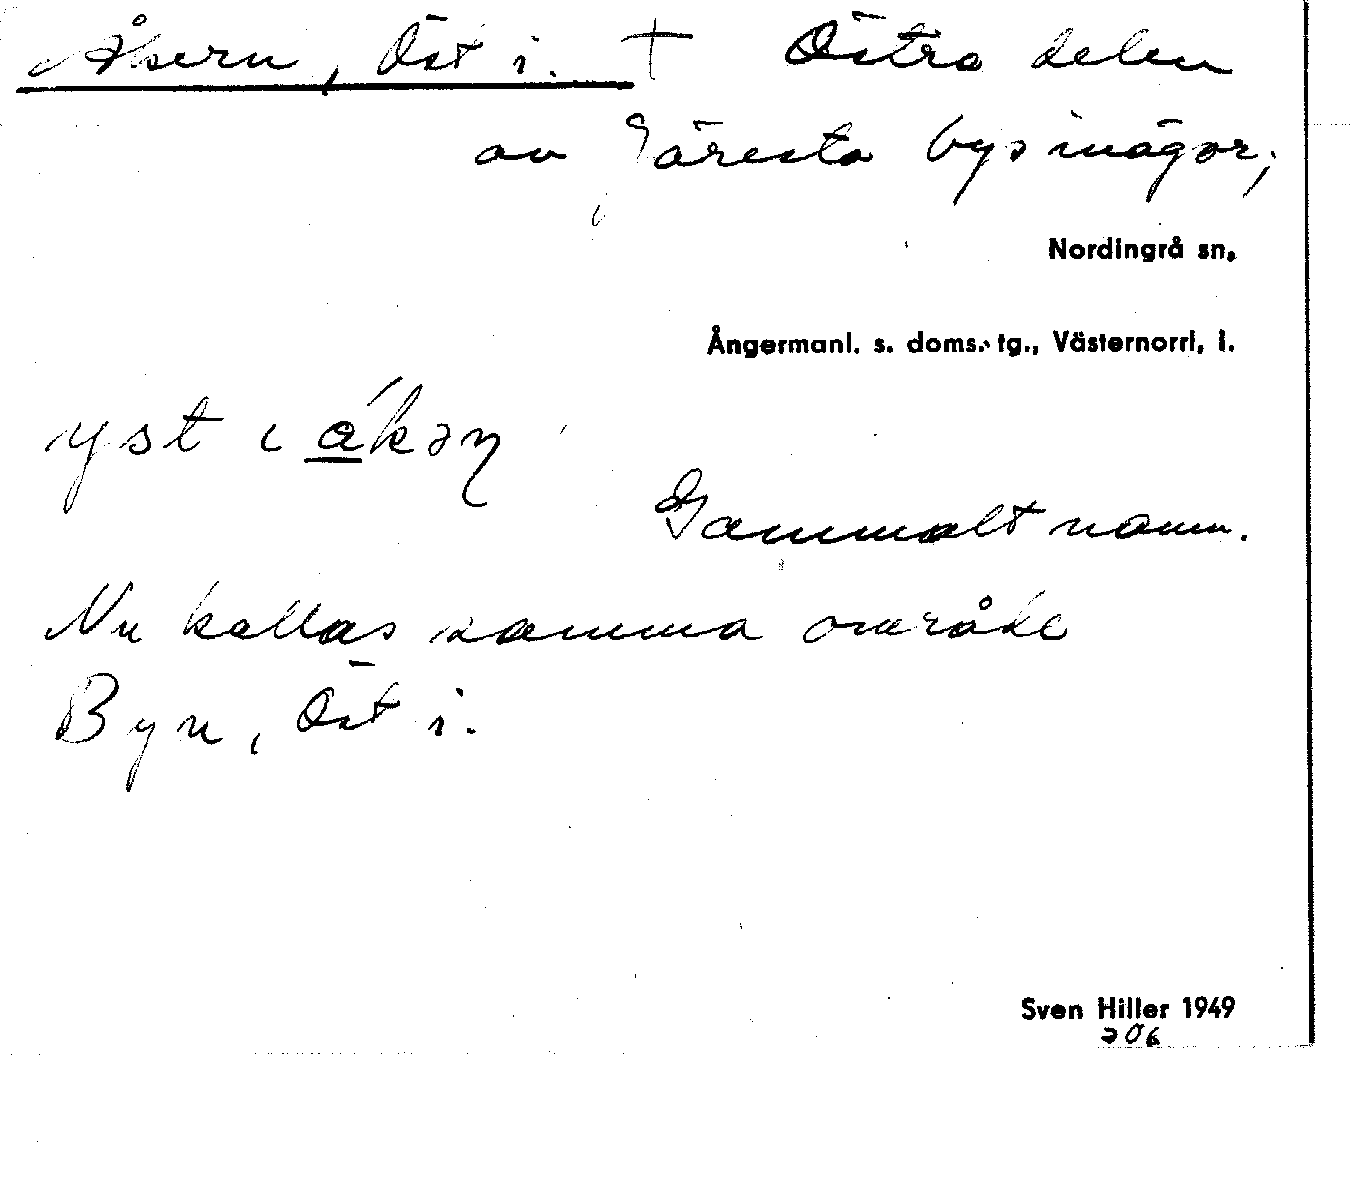 Åkern, Öst i. † Östra delen
av Järesta bys inägor;
Nordingrå sn.
Ångermanl. s. doms. tg., Västernorrl. l.
yst i
Gammalt namn.
Nu kallas samma område
Byn, Öst i.
Sven Hiller 1949
206